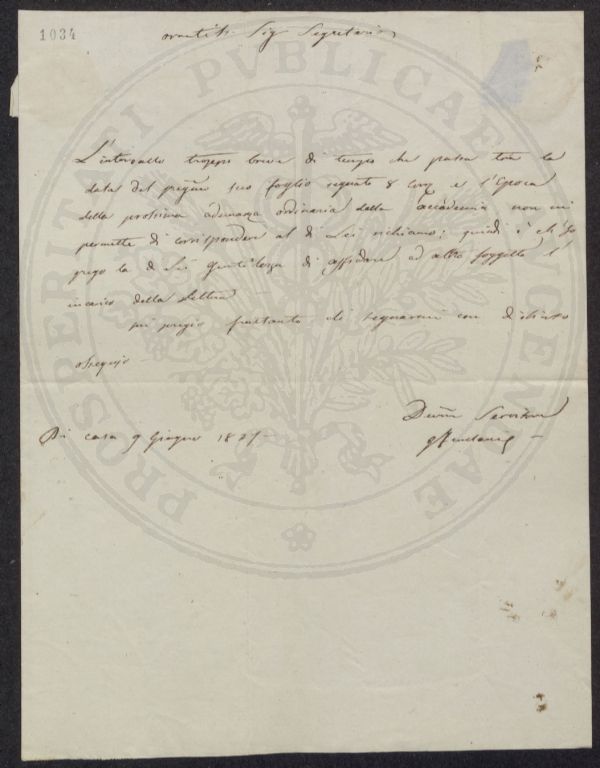 1034
Sig Segretario
L'intervallo troppo breve di tempo che passa tra la
data del pregmo suo foglio segnato 8 corr e l'Epoca
della prossima adunanza ordinaria della accademia non mi
permette di corrispondere al di Lei richiamo: quindi è ch'Io
prego la di Lei gentilezza di affidare ad altro soggetto l'
incarico della Lettura
Mi pregio frattanto di segnarmi con distinto
ossequio
Di casa 9 Giugno
Devmo Servitore
PROSPERITATI PVBLICAE AVGENDAE